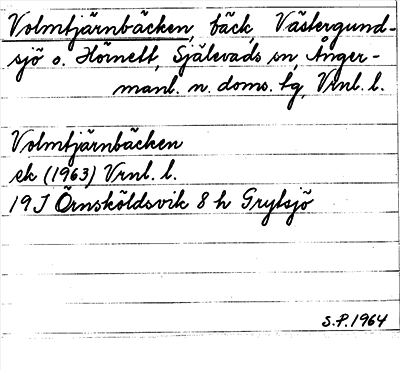 Volmtjärnbäcken, bäck, Västergund-
sjö o. Hörnett, Själevads sn, Ånger-
manl. n. doms. tg, Vrnl. l.
Volmtjärnbäcken
ek (1963) Vrnl. l.
19J Örnsköldsvik 8 h Grytsjö
S.P. 1964